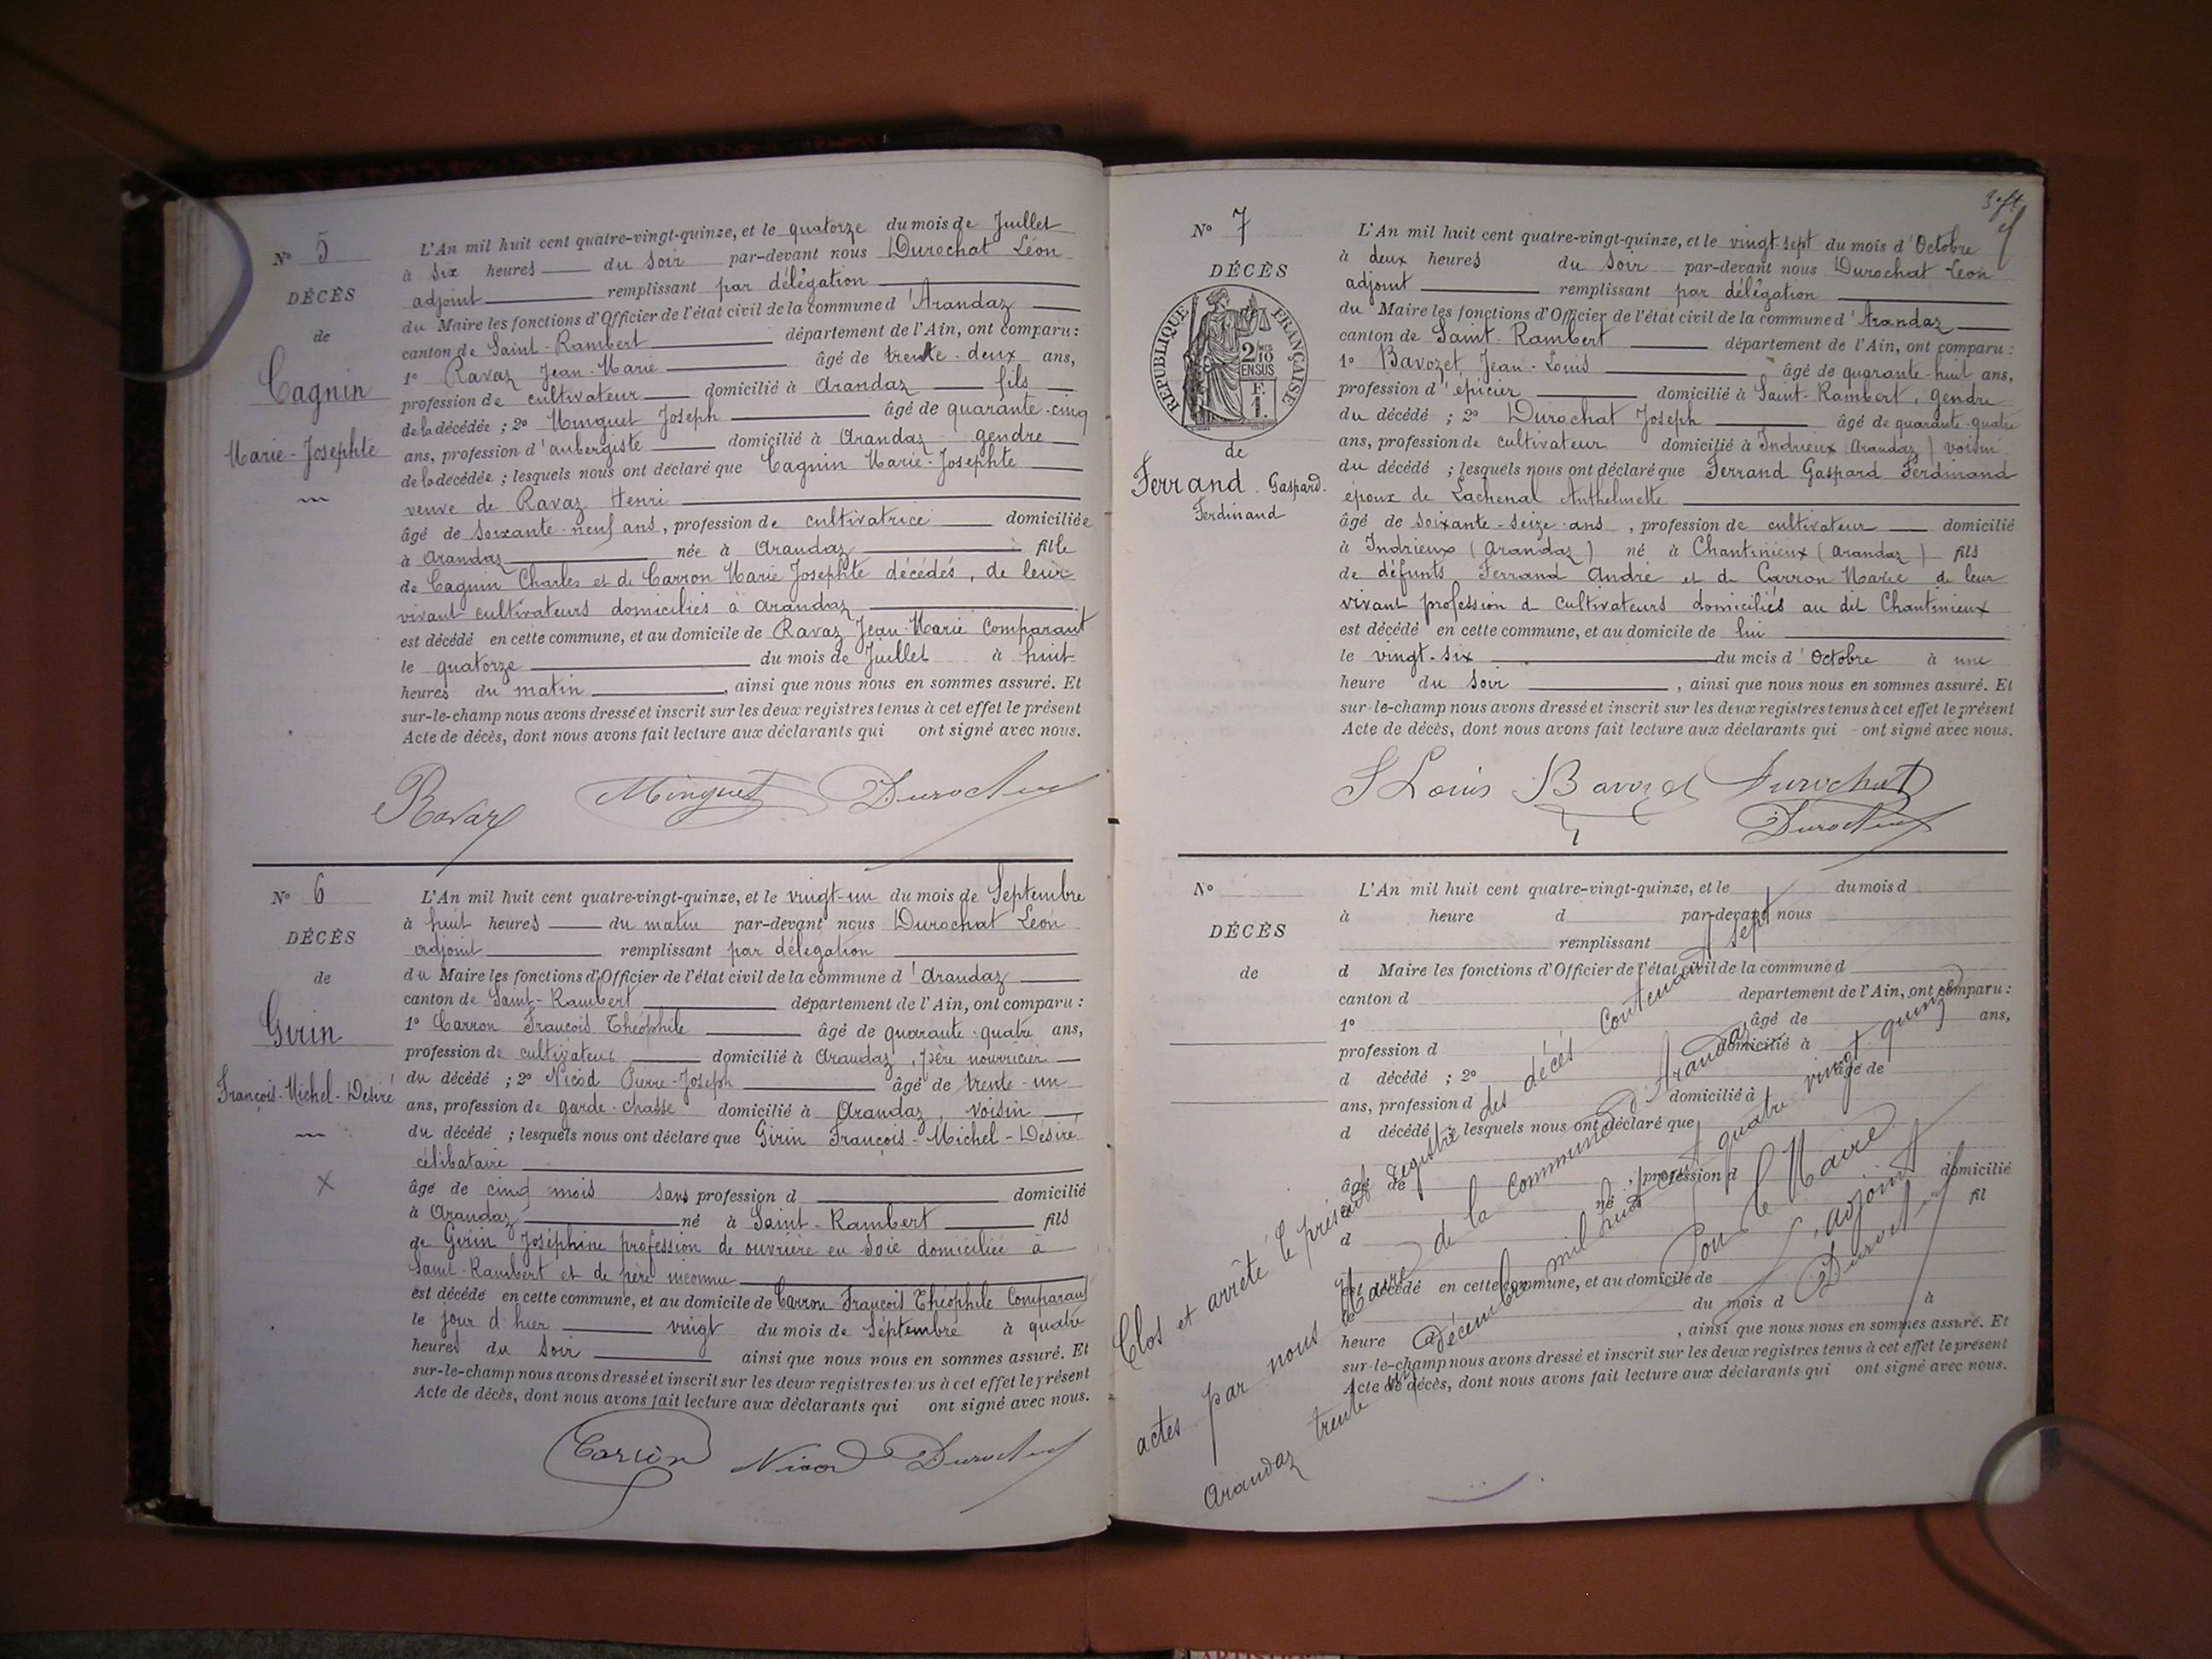 N° 5
DÉCÈS
de
Cagnin
Marie-Josephte
L'An mil huit cent quatre-vingt-quinze, et le quatorze du mois de Juillet
à six heures du soir par-devant nous Durochat Léon
adjoint remplissant par délégation
du Maire les fonctions d'Officier de l'état civil de la commune d'Arandaz
canton de Saint-Rambert département de l'Ain, ont comparu :
1° Ravaz Jean-Marie âgé de trente-deux ans,
profession de cultivateur domicilié à Arandaz fils
de la décédée ; 2° Minguet Joseph âgé de quarante-cinq
ans, profession d'aubergiste domicilié à Arandaz gendre
de la décédée ; lesquels nous ont déclaré que Cagnin Marie-Josephte
veuve de Ravaz Henri
âgé de soixante-neuf ans, profession de cultivatrice domiciliée
à Arandaz née à Arandaz fille
de Cagnin Charles et de Carron Marie Josephte décédés, de leur
vivant cultivateurs domiciliés à Arandaz
est décédé en cette commune, et au domicile de Ravaz Jean-Marie Comparant
le quatorze du mois de Juillet à huit
heures du matin, ainsi que nous nous en sommes assuré. Et
sur-le-champ nous avons dressé et inscrit sur les deux registres tenus à cet effet le présent
Acte de décès, dont nous avons fait lecture aux déclarants qui ont signé avec nous.
Ravaz Minguet Durochat
N° 6
DÉCÈS
de
Girin
François-Michel-Désiré
L'An mil huit cent quatre-vingt-quinze, et le vingt-un du mois de Septembre
à huit heures du matin par-devant nous Durochat Léon
adjoint remplissant par délégation
du Maire les fonctions d'Officier de l'état civil de la commune d'Arandaz
canton de Saint-Rambert département de l'Ain, ont comparu :
1° Carron François Théophile âgé de quarante-quatre ans,
profession de cultivateur domicilié à Arandaz, père nourricier
du décédé ; 2° Nicod Pierre-Joseph âgé de trente-un
ans, profession de garde-chasse domicilié à Arandaz, voisin
du décédé ; lesquels nous ont déclaré que Girin François-Michel-Désiré
célibataire
âgé de cinq mois sans profession d domicilié
à Arandaz né à Saint-Rambert fils
de Girin Joséphine profession de ouvrière en soie domiciliée à
Saint-Rambert et de père inconnu
est décédé en cette commune, et au domicile de Carron François Théophile Comparant
le jour d'hier vingt du mois de Septembre à quatre
heures du soir ainsi que nous nous en sommes assuré. Et
sur-le-champ nous avons dressé et inscrit sur les deux registres tenus à cet effet le présent
Acte de décès, dont nous avons fait lecture aux déclarants qui ont signé avec nous.
Carron Nicod Durochat
N° 7
DÉCÈS
RÉPUBLIQUE FRANÇAISE
2/10 EN SUS
F. 1.
de
Ferrand Gaspard.
Ferdinand
L'An mil huit cent quatre-vingt-quinze, et le vingt-sept du mois d'Octobre
à deux heures du soir par-devant nous Durochat Léon
adjoint remplissant par délégation
du Maire les fonctions d'Officier de l'état civil de la commune d'Arandaz
canton de Saint-Rambert département de l'Ain, ont comparu :
1° Bavozet Jean-Louis âgé de quarante-huit ans,
profession d'épicier domicilié à Saint-Rambert, gendre
du décédé ; 2° Durochat Joseph âgé de quarante-quatre
ans, profession de cultivateur domicilié à Indrieux Arandaz) voisin
du décédé ; lesquels nous ont déclaré que Ferrand Gaspard Ferdinand
époux de Lachenal Anthelmette
âgé de soixante-seize ans, profession de cultivateur domicilié
à Indrieux (Arandaz) né à Chantinieux (Arandaz) fils
de défunts Ferrand André et de Carron Marie de leur
vivant profession d cultivateurs domiciliés au dit Chantinieux
est décédé en cette commune, et au domicile de lui
le vingt-six du mois d'Octobre à une
heure du soir, ainsi que nous nous en sommes assuré. Et
sur-le-champ nous avons dressé et inscrit sur les deux registres tenus à cet effet le présent
Acte de décès, dont nous avons fait lecture aux déclarants qui ont signé avec nous.
J Louis Bavozet Durochat
Durochat
N°
DÉCÈS
de
L'An mil huit cent quatre-vingt-quinze, et le du mois d
à heure d par-devant nous
remplissant
d Maire les fonctions d'Officier de l'état civil de la commune d
canton d département de l'Ain, ont comparu :
1° âgé de ans,
profession d domicilié à
d décédé ; 2° âgé de
ans, profession d domicilié à
d décédé ; lesquels nous ont déclaré que
âgé de , profession d domicilié
à né à fil
d
est décédé en cette commune, et au domicile de
le du mois d à
heure d , ainsi que nous nous en sommes assuré. Et
sur-le-champ nous avons dressé et inscrit sur les deux registres tenus à cet effet le présent
Acte de décès, dont nous avons fait lecture aux déclarants qui ont signé avec nous.
Clos et arrêté le présent registre des décès contenant sept
actes par nous Maire de la commune d'Arandaz
Arandaz trente un décembre mil huit cent quatre vingt quinze
Pour le Maire
L'adjoint
Durochat